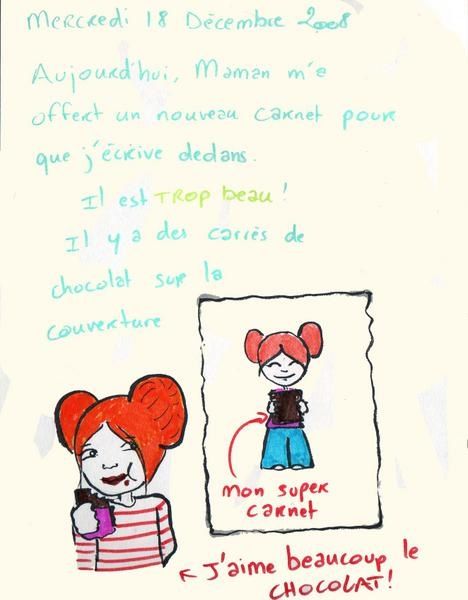 Mercredi 18 Décembre 2008
Aujourd'hui, Maman m'e
offert un nouveau carnet pour
que j'écrive dedans.
Il est TROP beau !
Il y a des carrés de
chocolat sur la
couverture
mon super
carnet
J'aime beaucoup le
CHOCOLAT!